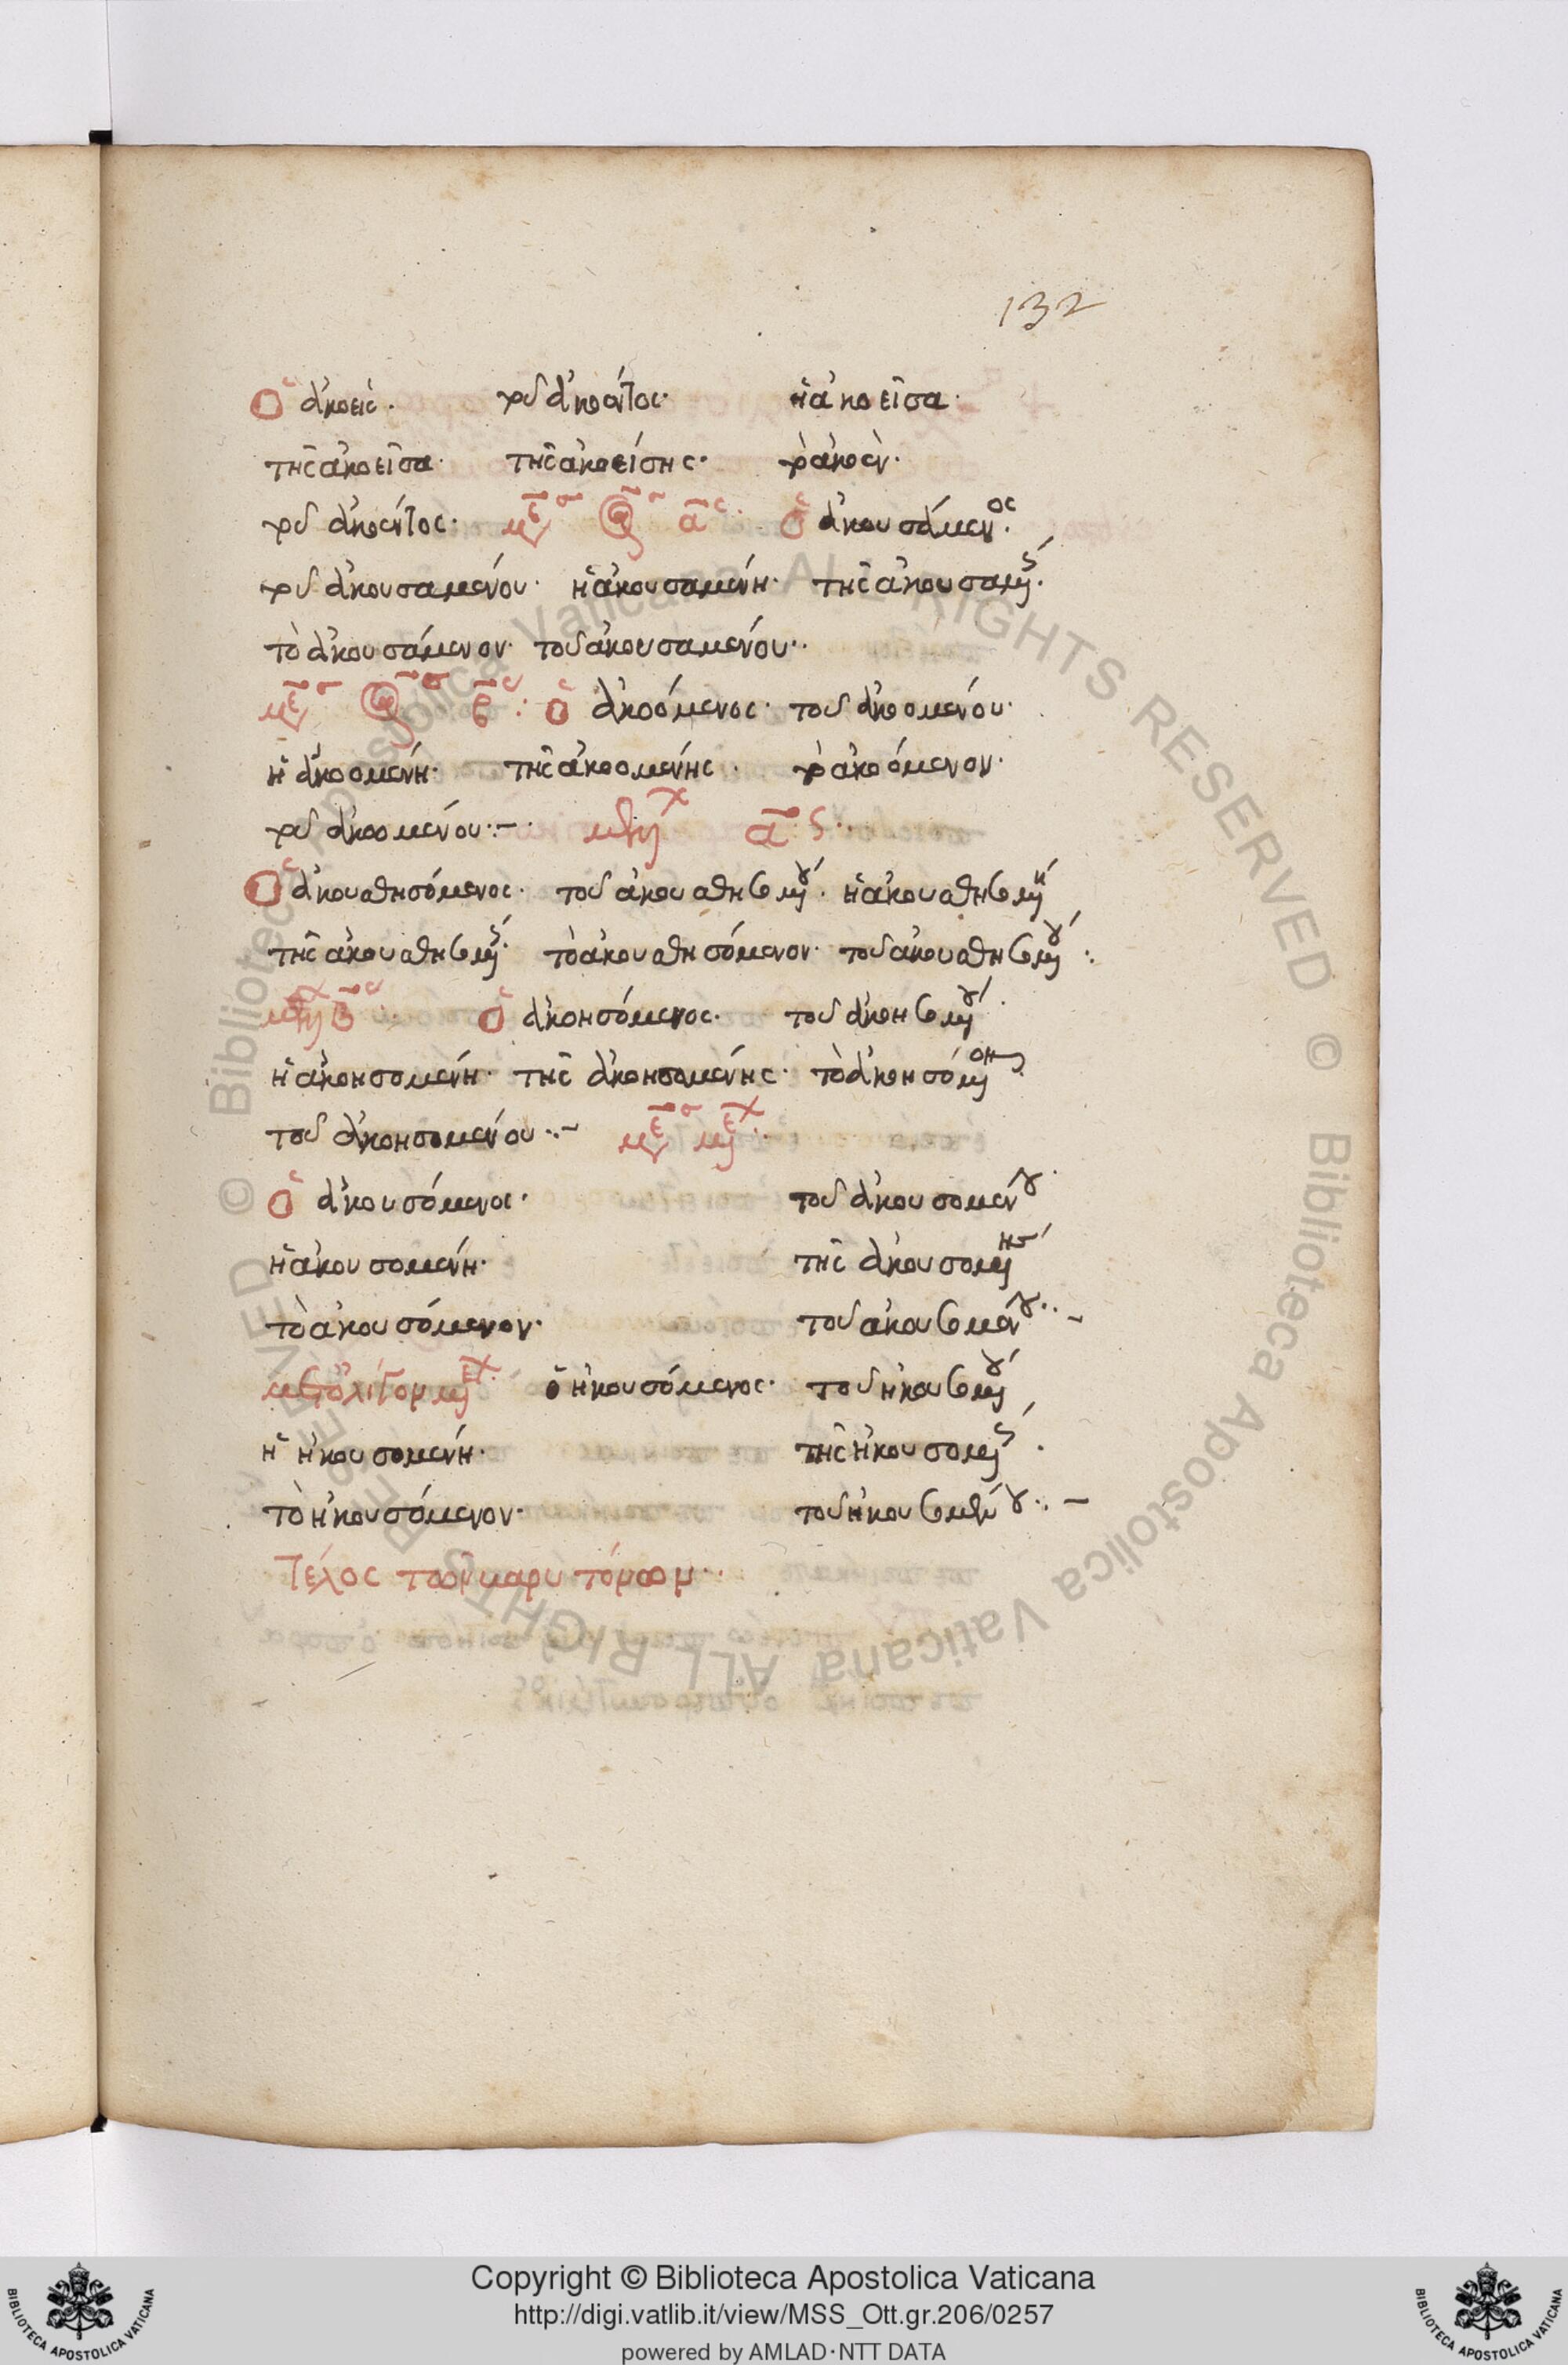 132
Ὁ ἀκοείς. τοῦ ἀκοέντος. ἡ ἀκοεῖσα.
τῆς ἀκοεῖσα. τῆς ἀκοείσης. τὸ ἀκοέν.
τοῦ ἀκοέντος. ὁ ἀκουσάμενος.
τοῦ ἀκουσαμένου. ἡ ἀκουσαμένη. τῆς ἀκουσαμένης.
τὸ ἀκουσάμενον. τοῦ ἀκουσαμένου.
ὁ ἀκοόμενος. τοῦ ἀκοομένου.
ἡ ἀκοομένη. τῆς ἀκοομένης. τὸ ἀκοόμενον.
τοῦ ἀκοομένου.
Ὁ ἀκουσθησόμενος. τοῦ ἀκουσθησομένου. ἡ ἀκουσθησομένη
τῆς ἀκουσθησομένης. τὸ ἀκουσθησόμενον. τοῦ ἀκουσθησομένου
ὁ ἀκοησόμενος. τοῦ ἀκοησομένου.
ἡ ἀκοησομένη. τῆς ἀκοησομένης. τὸ ἀκοησόμενον
τοῦ ἀκοησομένου.
ὁ ἀκουσόμενος. τοῦ ἀκουσομένου.
ἡ ἀκουσομένη. τῆς ἀκουσομένης
τὸ ἀκουσόμενον. τοῦ ἀκουσομένου.
ὁ ἠκουσόμενος. τοῦ ἠκουσομένου
ἡ ἠκουσομένη. τῆς ἠκουσομένης.
τὸ ἠκουσόμενον. τοῦ ἠκουσομένου.
Τέλος τῶν βαρυτόνων.
© Biblioteca Apostolica Vaticana ALL RIGHTS RESERVED © Biblioteca Apostolica Vaticana ALL RIGHTS RESERVED
Copyright © Biblioteca Apostolica Vaticana
http://digi.vatlib.it/view/MSS_Ott.gr.206/0257
powered by AMLAD·NTT DATA
BIBLIOTECA APOSTOLICA VATICANA
BIBLIOTECA APOSTOLICA VATICANA